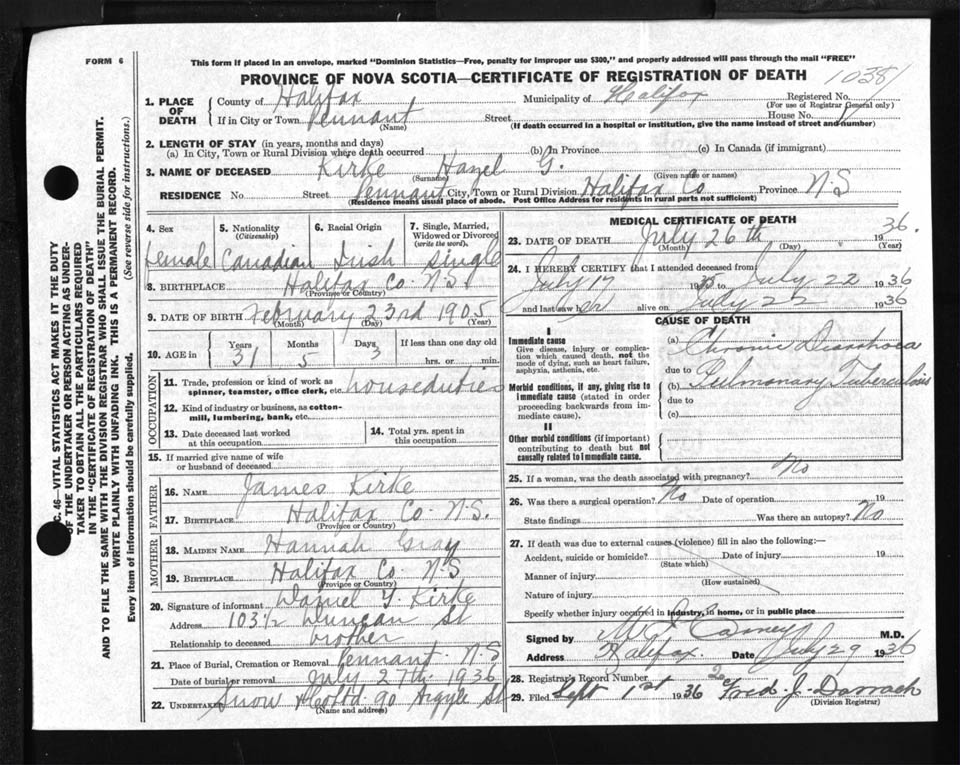 FORM 6
This form if placed in an envelope, marked "Dominion Statistics—Free, penalty for improper use $300," and properly addressed will pass through the mail "FREE"
PROVINCE OF NOVA SCOTIA—CERTIFICATE OF REGISTRATION OF DEATH
1. PLACE OF DEATH { County of Halifax Municipality of Halifax Registered No.
(For use of Registrar General only)
If in City or Town Pennant Street House No.
(Name) (If death occurred in a hospital or institution, give the name instead of street and number)
2. LENGTH OF STAY (in years, months and days)
(a) In City, Town or Rural Division where death occurred (b) In Province (c) In Canada (if immigrant)
3. NAME OF DECEASED Kirke Hazel G.
(Surname) (Given name or names)
RESIDENCE No. Street Pennant City, Town or Rural Division Halifax Co Province N-S
(Residence means usual place of abode. Post Office Address for residents in rural parts not sufficient)
4. Sex 5. Nationality (Citizenship) 6. Racial Origin 7. Single, Married, Widowed or Divorced (write the word).
Female Canadian Irish single
8. BIRTHPLACE Halifax Co. N.S.
(Province or Country)
9. DATE OF BIRTH February 23rd 1905
(Month) (Day) (Year)
10. AGE in Years Months Days If less than one day old
31 5 3 hrs. or min.
OCCUPATION
11. Trade, profession or kind of work as spinner, teamster, office clerk, etc. houseduties
12. Kind of industry or business, as cotton-mill, lumbering, bank, etc.
13. Date deceased last worked at this occupation 14. Total yrs. spent in this occupation
15. If married give name of wife or husband of deceased
FATHER
16. NAME James Kirke
17. BIRTHPLACE Halifax Co. N.S.
(Province or Country)
MOTHER
18. MAIDEN NAME Hannah Gray
19. BIRTHPLACE Halifax Co. N-S
(Province or Country)
20. Signature of informant Daniel Y. Kirke
Address 103½ Duncan St
Relationship to deceased brother
21. Place of Burial, Cremation or Removal Pennant N-S
Date of burial or removal July 27th 1936
22. UNDERTAKER Snow & Co Ltd. 90 Argyle St
(Name and address)
MEDICAL CERTIFICATE OF DEATH
23. DATE OF DEATH July 26th 1936.
(Month) (Day) (Year)
24. I HEREBY CERTIFY that I attended deceased from:
July 17 1935 to July 22 1936
and last saw her alive on July 22 1936
CAUSE OF DEATH
I
Immediate cause
Give disease, injury or complication which caused death, not the mode of dying, such as heart failure, asphyxia, asthenia, etc.
(a) Chronic Diarrhoea
due to
Morbid conditions, if any, giving rise to immediate cause (stated in order proceeding backwards from immediate cause).
(b) Pulmonary Tuberculosis
due to
(c)
II
Other morbid conditions (if important) contributing to death but not causally related to immediate cause.
25. If a woman, was the death associated with pregnancy? No
26. Was there a surgical operation? No Date of operation 19
State findings Was there an autopsy? No
27. If death was due to external causes (violence) fill in also the following:—
Accident, suicide or homicide? Date of injury 19
(State which)
Manner of injury
(How sustained)
Nature of injury
Specify whether injury occurred in industry, in home, or in public place
Signed by Carney M.D.
Address Halifax. Date July 29 1936
28. Registrar's Record Number
29. Filed Sept 1st 1936 Fred. J. Darrach
(Division Registrar)
C. 46—VITAL STATISTICS ACT MAKES IT THE DUTY
OF THE UNDERTAKER OR PERSON ACTING AS UNDER-
TAKER TO OBTAIN ALL THE PARTICULARS REQUIRED
IN THE "CERTIFICATE OF REGISTRATION OF DEATH"
AND TO FILE THE SAME WITH THE DIVISION REGISTRAR WHO SHALL ISSUE THE BURIAL PERMIT.
WRITE PLAINLY WITH UNFADING INK. THIS IS A PERMANENT RECORD.
Every item of information should be carefully supplied. (See reverse side for instructions.)